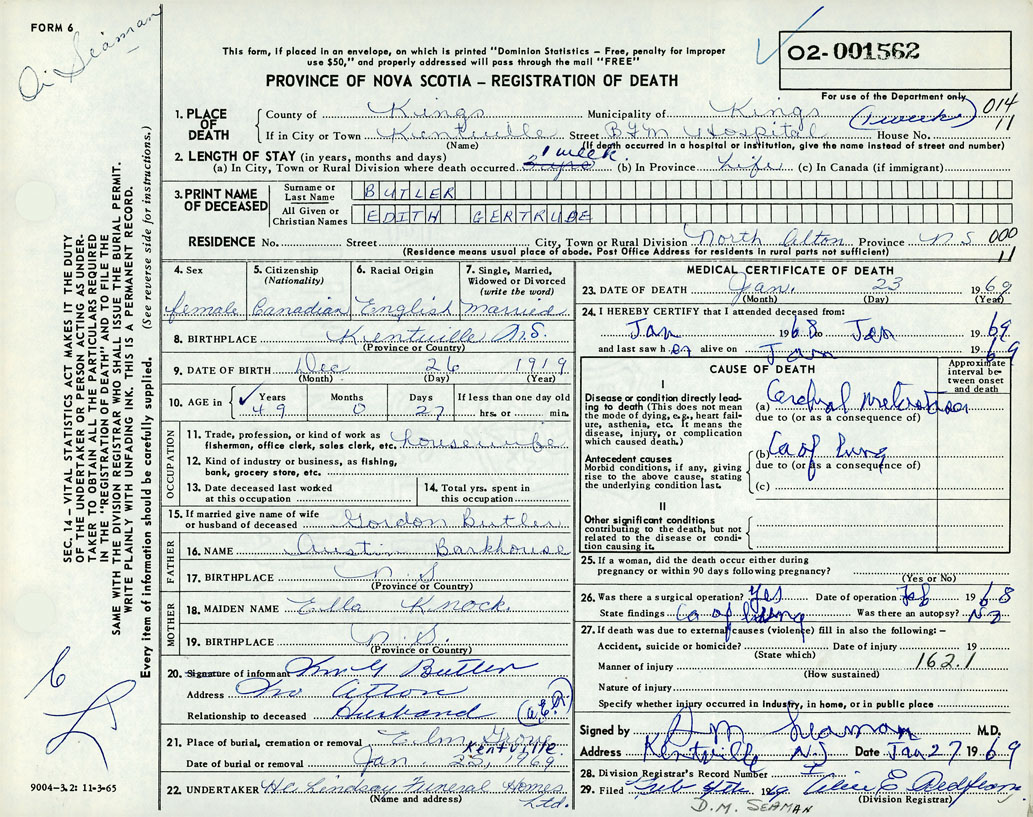 FORM 6
Dr Seaman
This form, if placed in an envelope, on which is printed "Dominion Statistics – Free, penalty for improper
use $50," and properly addressed will pass through the mail "FREE"
PROVINCE OF NOVA SCOTIA – REGISTRATION OF DEATH
02-001562
For use of the Department only
014
11
1. PLACE OF DEATH
County of Kings Municipality of Kings (1 week)
If in City or Town Kentville Street BFM Hospital House No.
(Name) (If death occurred in a hospital or institution, give the name instead of street and number)
2. LENGTH OF STAY (in years, months and days) 1 week
(a) In City, Town or Rural Division where death occurred (b) In Province Life (c) In Canada (if immigrant)
3. PRINT NAME OF DECEASED
Surname or Last Name BUTLER
All Given or Christian Names EDITH GERTRUDE
RESIDENCE No. Street City, Town or Rural Division North Alton Province N S 000
11
(Residence means usual place of abode. Post Office Address for residents in rural parts not sufficient)
4. Sex 5. Citizenship (Nationality) 6. Racial Origin 7. Single, Married, Widowed or Divorced (write the word)
female Canadian English Married
8. BIRTHPLACE Kentville N.S.
(Province or Country)
9. DATE OF BIRTH Dec 26 1919
(Month) (Day) (Year)
10. AGE in Years Months Days If less than one day old
49 0 27 hrs. or min.
OCCUPATION
11. Trade, profession, or kind of work as
fisherman, office clerk, sales clerk, etc. housewife
12. Kind of industry or business, as fishing,
bank, grocery store, etc.
13. Date deceased last worked
at this occupation
14. Total yrs. spent in
this occupation
15. If married give name of wife
or husband of deceased Gordon Butler
FATHER
16. NAME Austin Barkhouse
17. BIRTHPLACE N.S.
(Province or Country)
MOTHER
18. MAIDEN NAME Ella Knock.
19. BIRTHPLACE N.S.
(Province or Country)
20. Signature of informant Butler
Address No Alton
Relationship to deceased Husband
21. Place of burial, cremation or removal Elm Grove
Kentville.
Date of burial or removal Jan 1969
22. UNDERTAKER H.C. Lindsay Funeral Homes
(Name and address) Ltd.
MEDICAL CERTIFICATE OF DEATH
23. DATE OF DEATH Jan. 23 1969
(Month) (Day) (Year)
24. I HEREBY CERTIFY that I attended deceased from:
Jan 1968 Jan 1969
and last saw her alive on Jan 1969
CAUSE OF DEATH
Approximate interval between onset and death
I
Disease or condition directly leading
to death (This does not mean
the mode of dying, e.g., heart failure,
asthenia, etc. It means the
disease, injury, or complication
which caused death.)
(a) Cerebral metastases
due to (or as a consequence of)
Antecedent causes
Morbid conditions, if any, giving
rise to the above cause, stating
the underlying condition last.
(b) Ca of lung
due to (or as a consequence of)
(c)
II
Other significant conditions
contributing to the death, but not
related to the disease or condition
causing it.
25. If a woman, did the death occur either during
pregnancy or within 90 days following pregnancy?
(Yes or No)
26. Was there a surgical operation? Yes Date of operation Feb 1968
State findings Ca of lung Was there an autopsy? No
27. If death was due to external causes (violence) fill in also the following: –
Accident, suicide or homicide? Date of injury 19
(State which)
Manner of injury 162.1
(How sustained)
Nature of injury
Specify whether injury occurred in Industry, in home, or in public place
Signed by D M Seaman M.D.
Address Kentville N.S Date Jan 27 1969
28. Division Registrar's Record Number
29. Filed Feb 4th 1969
(Division Registrar)
D.M. SEAMAN
SEC. 14 – VITAL STATISTICS ACT MAKES IT THE DUTY
OF THE UNDERTAKER OR PERSON ACTING AS UNDERTAKER
TO OBTAIN ALL THE PARTICULARS REQUIRED
IN THE "REGISTRATION OF DEATH" AND TO FILE THE
SAME WITH THE DIVISION REGISTRAR WHO SHALL ISSUE THE BURIAL PERMIT.
WRITE PLAINLY WITH UNFADING INK. THIS IS A PERMANENT RECORD.
Every item of information should be carefully supplied. (See reverse side for instructions.)
9004-3.2: 11-3-65